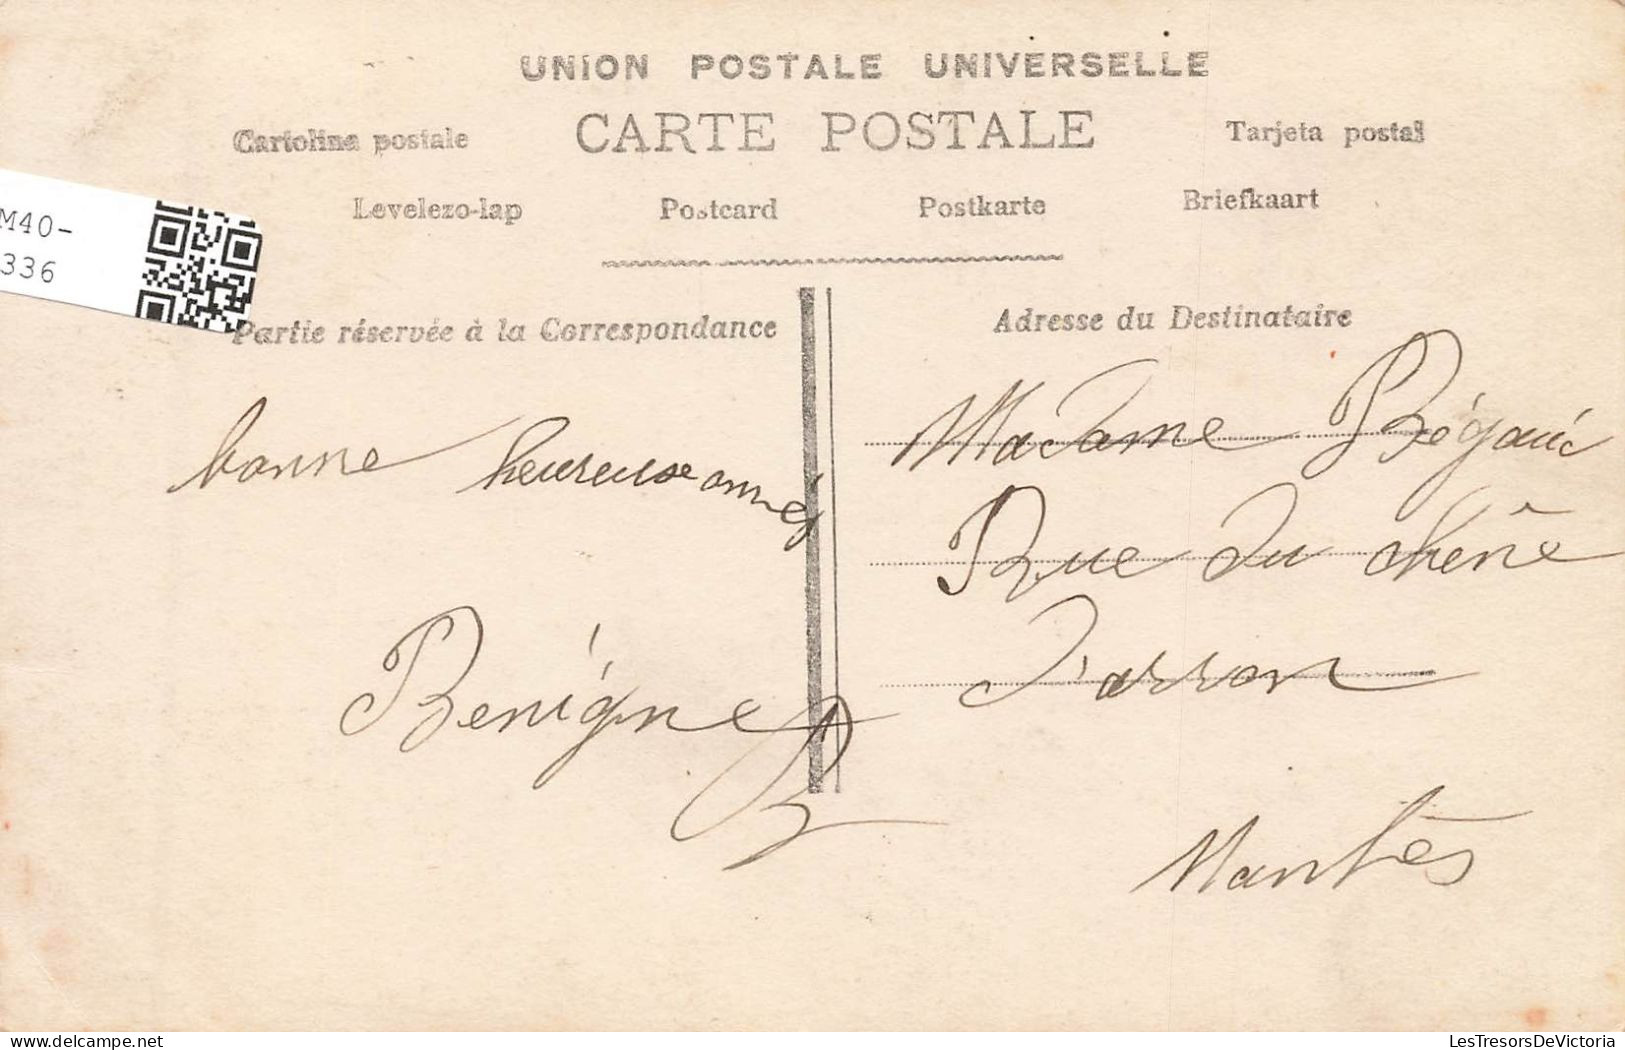 UNION POSTALE UNIVERSELLE
Cartolina postale CARTE POSTALE Tarjeta postal
Levelezo-lap Postcard Postkarte Briefkaart
M40-
336
Partie réservée à la Correspondance
bonne heureuse anné
Benigne B
Adresse du Destinataire
Madame
Rue du chêne
d'arron
Nantes
LesTresorsDeVictoria